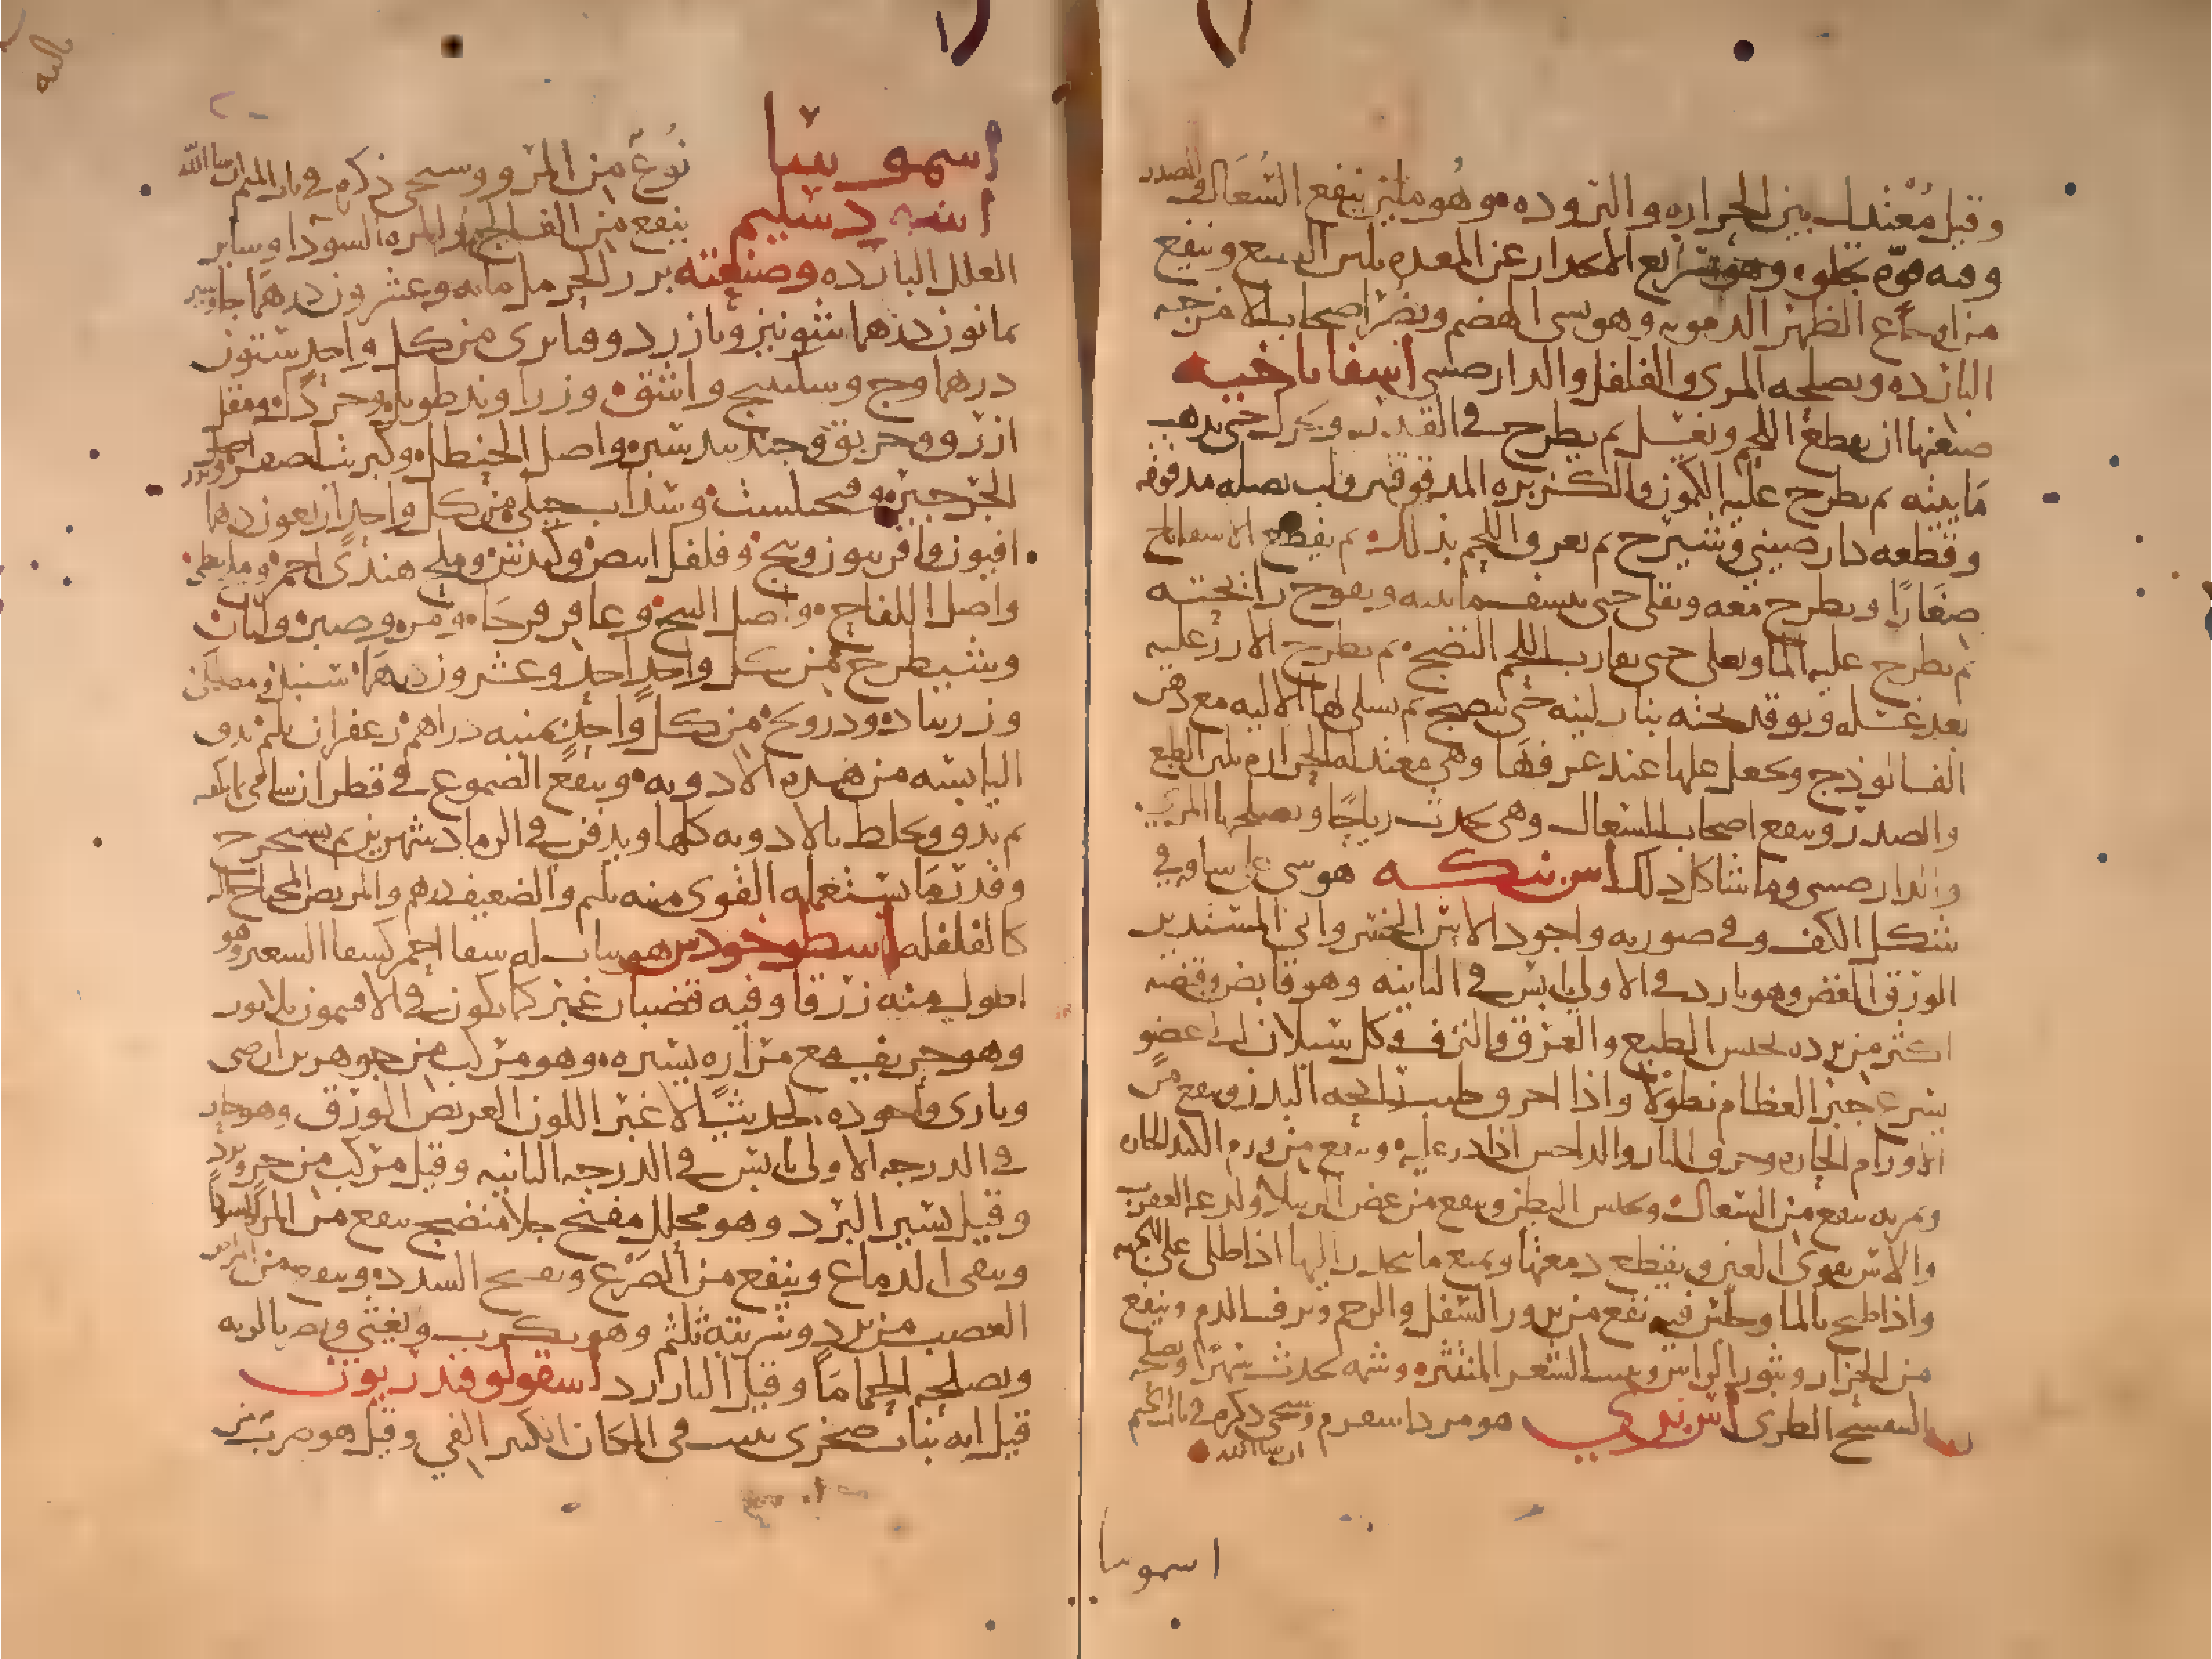 وقيل معتدل بين الحراره والبروده وهو ملين ينفع السعال والصدر
وفيه قوه تجلوه وهو سريع الانحدار عن المعده يلين الطبع وينفع
من اوجاع الظهر الدمويه وهو سى الهضم ويضر اصحاب الامزجه
البارده ويصلحه المرى والفلفل والدارصينى اسفاناخيه
صنعتها ان يقطع اللحم ويغسل ثم يطرح فى القدر ويحرك حتى يذهب
مايته ثم يطرح عليه الكمون والكزبره المدقوقه وقلب بصله مدقوقه
وقطعه دارصينى وشيرج ثم يعرق اللحم بذلك ثم يقطع الاسفاناخ
صغارا ويطرح معه ويقلى حتى ينشف مايه ويفوح رائحته
ثم يطرح عليه الما ويغلى حتى يقارب اللحم النضج ثم يطرح الارز عليه
بعد غسله ويوقد تحته بنار لينه حتى ينضج ثم يسلى لها الاليه مع دهن
الفالوذج ويجعل عليها عند غرفها وهى معتدله الحراره تلين الطبع
والصدر وينفع اصحاب السعال وهى تحدث رياحا ويصلحها المرى
والدارصينى وما شاكل ذلك
شكل الكف وفى صورته واجود الاس الخسروانى المستدير
الورق الغض وهو بارد فى الاولى يابس فى الثانيه وهو قابض وقبضه
اكثر من برده يحبس الطبع والعرق والنزف وكل سيلان الى عضو
يسرع جبر العظام نطولا واذا احرق طيب رايحه البدن وينفع من
الاورام الحاره وحرق النار والداحس اذا ذر عليه وينفع من ورم
وثمرته تنفع من السعال وتحبس البطن وينفع من عض الرتيلا ولدغ العقرب
والاس يقوى العين ويقطع دمعتها ويمنع ما ينحدر اليها اذا طلى على الجبهه
واذا طبخ بالما وجلس فيه نفع من بروز السفل والرحم ونزف الدم وينفع
من الحزاز وبثور الراس وينبت الشعر المنتثر وشمه يحدث سهرا ويصلحه
البنفسج الطرى هو وسيجى ذكره فى باب الميم
ان شا الله
اسموسا
اسموسا نوع من المرو وسيجى ذكره فى باب الميم ان شا الله
ينفع من الفالج والمره السودا وساير
العلل البارده وصنعته بزر الحرمل مايه وعشرون درهما جاوشير
ثمانون درهما شونيز وبازرد وفنابرى من كل واحد ستون
درهما وج وسكبينج واشق وزراوند طويل وخردل ومقل
ازرق وخربق وجندبيدستر واصل الحنظل وكبريت اصفر وبزر
الجرجير وفنجنكشت وسذاب جبلى من كل واحد اربعون درهما
افيون وافربيون وبنج وفلفل ابيض وكندش وملح هندى احمر وملح نبطى
واصل اللفاح واصل البنج وعاقر قرحا ومر وصبر ولبان
وشيطرج من كل واحد احد وعشرون درهما سنبل ومصطكى
وزرنباد ودرونج من كل واحد ثمنيه دراهم زعفران يدق
اليابسه من هذه الادويه وينقع الصموغ فى قطران شامى
ثم يدق ويخلط بالادويه كلها ويدفن فى الرماد شهرين ثم يستخرج
وقدر ما يستعمله القوى منه والضعيف درهم والمريض المحتاج اليه
كالفلفله اسطوخودس هو نبات له سفا احمر كسفا الشعير وهو
اطول منه ورقا وفيه قضبان غبر كما يكون فى الافتيمون بلا نور
وهو حريف مع مراره يسيره وهو مركب من جوهرين ارضى
ونارى واجوده الحديث الاغبر اللون العريض الورق وهو حار
فى الدرجه الاولى يابس فى الدرجه الثانيه وقيل مركب من حر وبرد
وقيل يسير البرد وهو محلل مفتح جلا منضج ينفع من المره السودا
وينقى الدماغ وينفع من الصرع ويفتح السدد وينفع من امراض
العصب من برد وشربته ثلثم وهو يكرب ويغثى ويضر بالريه
ويصلحه الحماما وقيل اسقولوفندريون
قيل انه نبات صخرى ينبت فى المكان الكثير الفى وقيل هو ضرب من